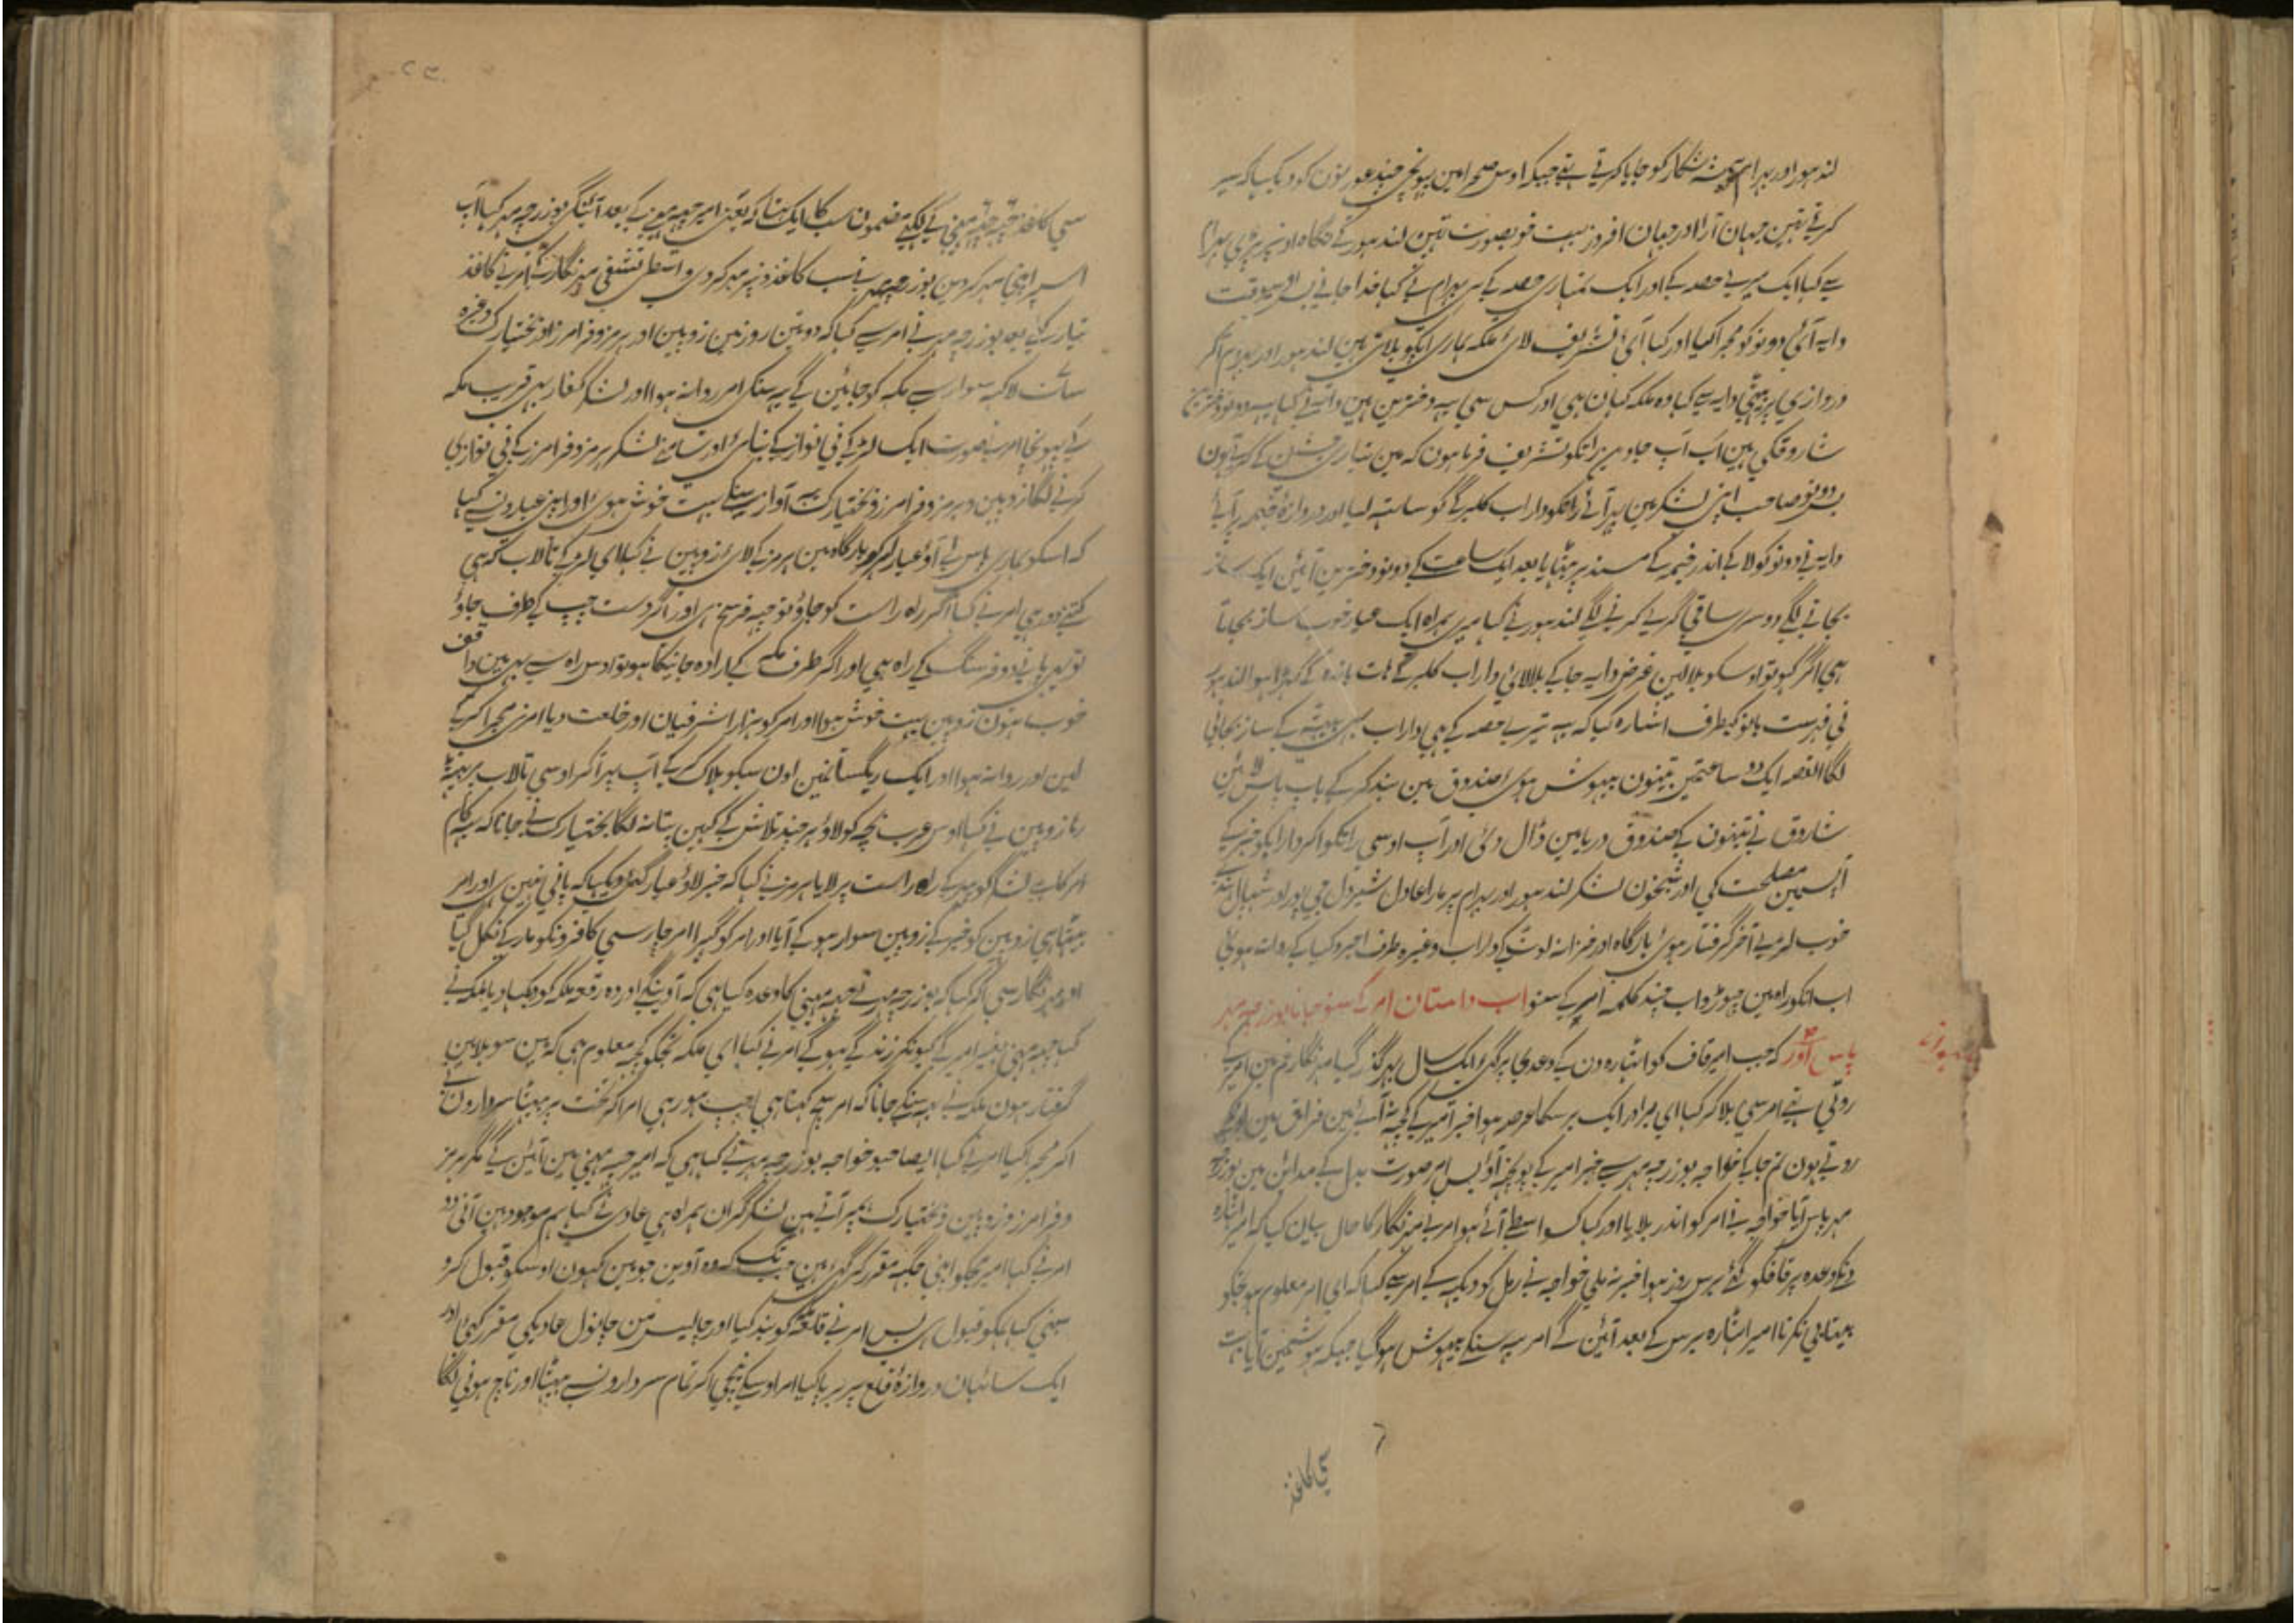 لندہور اور بہرام ہمیشہ شکار کو جایا کرتے تہے جبکہ اوس صحرا مین پہونچی چند عورتون کو دیکہا کہ سیر
کرتے تہین جہان آرا اور جہان افروز بہت خوبصورت تہین لندہور کے نگاہ اونپر پڑی بہرام
سے کہا ایک میرے حصہ کے اور ایک تمہاری حصہ کے ہی بہرام نے کہا خدا جانے
دایہ آئی دونو کو مجرا کیا اور کہا آئی تشریف لائ ملکہ ہماری آپکو بلاتی ہین لندہور اور بہرام اکر
دروازی پر بیٹہی دایہ سے کہا وہ ملکہ کہان ہی اور کس سی یہ دخترین ہین دایہ نے کہا یہ دونو دختر
شاروق کی ہین اب آپ جاوین راتکو تشریف فرما ہون کہ مین تیاری جشن کے کرتے ہون
پس دونو صاحب اپنی لشکر مین پہر آئے راتکو داراب کلہرگے کو ساتہ لیا اور دروازۂ خیمہ پر آئے
دایہ نے دونو کو لا کے اندر خیمہ کے مسند پر بیٹہایا بعد ایک ساعت کے دونو دخترین آئین ایک ساز
بجانے لگے دوسری ساقی گری کرنے لگے لندہور نے کہا میری ہمراہ ایک عیار خوب ساز بجاتا
ہی اگر کہو تو اوسکو بلا لین غرض دایہ جا کے بلا لائی داراب کلہرگے ہات باندہ کے کہڑا ہوا لندہور
نے فہرست بانو کیطرف اشارہ کیا کہ یہ تیرے حصہ کے ہی داراب بہی بیٹہ کے ساز بجانی
لگا القصہ ایک دو ساعتمین تینون بیہوش ہوی صندوق مین بند کر کے باپ پاس لائین
شاروق نے تینون کے صندوق دریا مین ڈال دئی اور آپ اوسی راتکو
آپسمین مصلحت کی اور شبخون لشکر لندہور اور بہرام پر مارا عادل شیردل
خوب لڑے آخر گرفتار ہوئی بارگاہ اور خزانہ لوٹ کی داراب وغیرہ طرف اجروکیا کے روانہ ہوئی
اب انکو راہ مین چہوڑو اب چند کلمہ امیر کے سنو اب داستان امر کے سنو جانا بوزرجمہر
پاس اور کہ جب امیر قاف کو اٹہارہ دن کے وعدی پر گئی ایک سال بہر گذر گیا مہرنگار غم مین امیر کے
روتی تہے امر سی بلا کر کہا ای برادر ایک برسکا عرصہ ہوا خبر امیر کے کچہ نہ آئے مین فراق مین
روتے ہون تم جا کے خواجہ بوزرجمہر سے خبر امیر کے پونچہہ آؤ پس امر صورت بدل کے مداین مین بوزرج
مہر پاس آیا خواجہ نے امر کو اندر بلایا اور کہا کسواسطے آئے ہو امر نے مہرنگار کا حال بیان کیا کہ امیر اٹہارہ
دنکے وعدہ پر قافکو گئے برس روز ہوا خبر نہ ملی خواجہ نے رمل کو دیکہہ کے امر سے کہا کہ ای امر معلوم ہو تجکو
بیتابی نکرنا امیر اٹہارہ برس کے بعد آئین گے امر یہ سنکے بیہوش ہو گیا جبکہ ہوشمین آیا بہت
سی کاغذ
سی کاغذ چہہ چہہ مہنی کے لکہے مضمون سب کا ایک تہا کہ یعنی امیر چہہ مہنے کے بعد آئینگے بوزرجمہر کہا آپ
اسپر اپنی مہر کر دین بوزرجمہر نے سب کاغذونپر مہر کر دی واسطی تشفی مہرنگار کے امر نے کاغذ
تیار کئے بعد بوزرجمہر نے امر سے کہا کہ دو تین روز مین زوبین اور ہرمز و فرامرز اور بختیارک وغیرہ
سات لاکہہ سوار سے مکہ کو جائین گے یہ سنکر امر روانہ ہوا اور لشکر کفار بہی قریب مکہ
کے پہونچا امر بصورت ایک لڑکے نے نواز کے بنا سر اور سامنے لشکر ہرمز و فرامرز کے نی نوازی
کرنے لگا زوبین و ہرمز و فرامرز و بختیارک یہ آواز سنکے بہت خوش ہوئی اور اپنی عیارون سے کہا
کہ اسکو ہماری پاس لے آؤ عیار امر کو بارگاہ مین ہرمز کے لائی زوبین نے کہا ای لڑکے تالاب مکہ ہی
کتنے دور ہی امر نے کہا اگر راہ راست کو جاؤ تو چہہ فرسخ ہی اور اگر دست چپ کے طرف جاؤ
تو یہی پانی دو فرسنگ کے راہ ہی اور اگر طرف مکے کے ارادہ جانیکا ہو تو اوس راہ سے بہی مین واقف
خوب ہون زوبین بہت خوش ہوا اور امر کو ہزار اشرفیان اور خلعت دیا امر نے مجرا کر کے
لین اور روانہ ہوا اور ایک ریگستانمین اون سبکو ہلاک کر کے آپ پہر آ کر اوسی تالاب پر بیٹہا
رہا زوبین نے کہا اوس عرب بچہ کو لاؤ ہر چند تلاش کے کہین پتا نہ لگا بختیارک نے جانا کہ یہ کام
امر کا ہے لشکر کو پہر کے راہ راست پر لایا ہرمز نے کہا کہ خبر لاؤ عیار گئی دیکہا کہ پانی نہین ہی اور امر
بیٹہا ہی زوبین کو خبر کے زوبین سوار ہو کے آیا اور امر کو گہیرا امر چار سی کافرونکو مار کے نکل گیا
اور مہرنگار سی آ کہا کہ بوزرجمہر نے چہہ مہینی کا وعدہ کیا ہی کہ آوینگے اور وہ رقعہ ملکہ کو دیکہا دیا ملکہ نے
کہا چہہ مہنی بغیر امیر کے کیونکر زندگے ہو گے امر نے کہا ای ملکہ تجکو کچہ معلوم ہی کہ مین سو بلا مین
گرفتار ہون ملکہ نے یہ سنکے جانا کہ امر سچ کہتا ہی چپ ہو رہی امر آ کر تخت پر بیٹہا سردارون نے
آکر مجرا کیا امر نے کہا ایصاحبو خواجہ بوزرجمہر نے کہا ہی کہ امیر چہہ مہنی مین آئین گے مگر ہرمز
و فرامرز و زوبین و بختیارک ہمپر آتے ہین لشکر گران ہمراہ ہی عادی نے کہا ہم موجود ہین آنے دو
امر نے کہا امیر تمکو اپنی جگہہ مقرر کر گئے ہین جب تک کہ وہ آوین جو مین کہون اوسکو قبول کرو
سبنی کہا ہمکو قبول ہی پس امر نے قلعہ کو بند کیا اور چالیس من چانول عادیکی مقرر کئی اور
ایک سائبان دروازۂ قلع پر برپا کیا امر اوسکے نیچی آکر تمام سردارونسے بیٹہا اور ناچ ہونی لگا